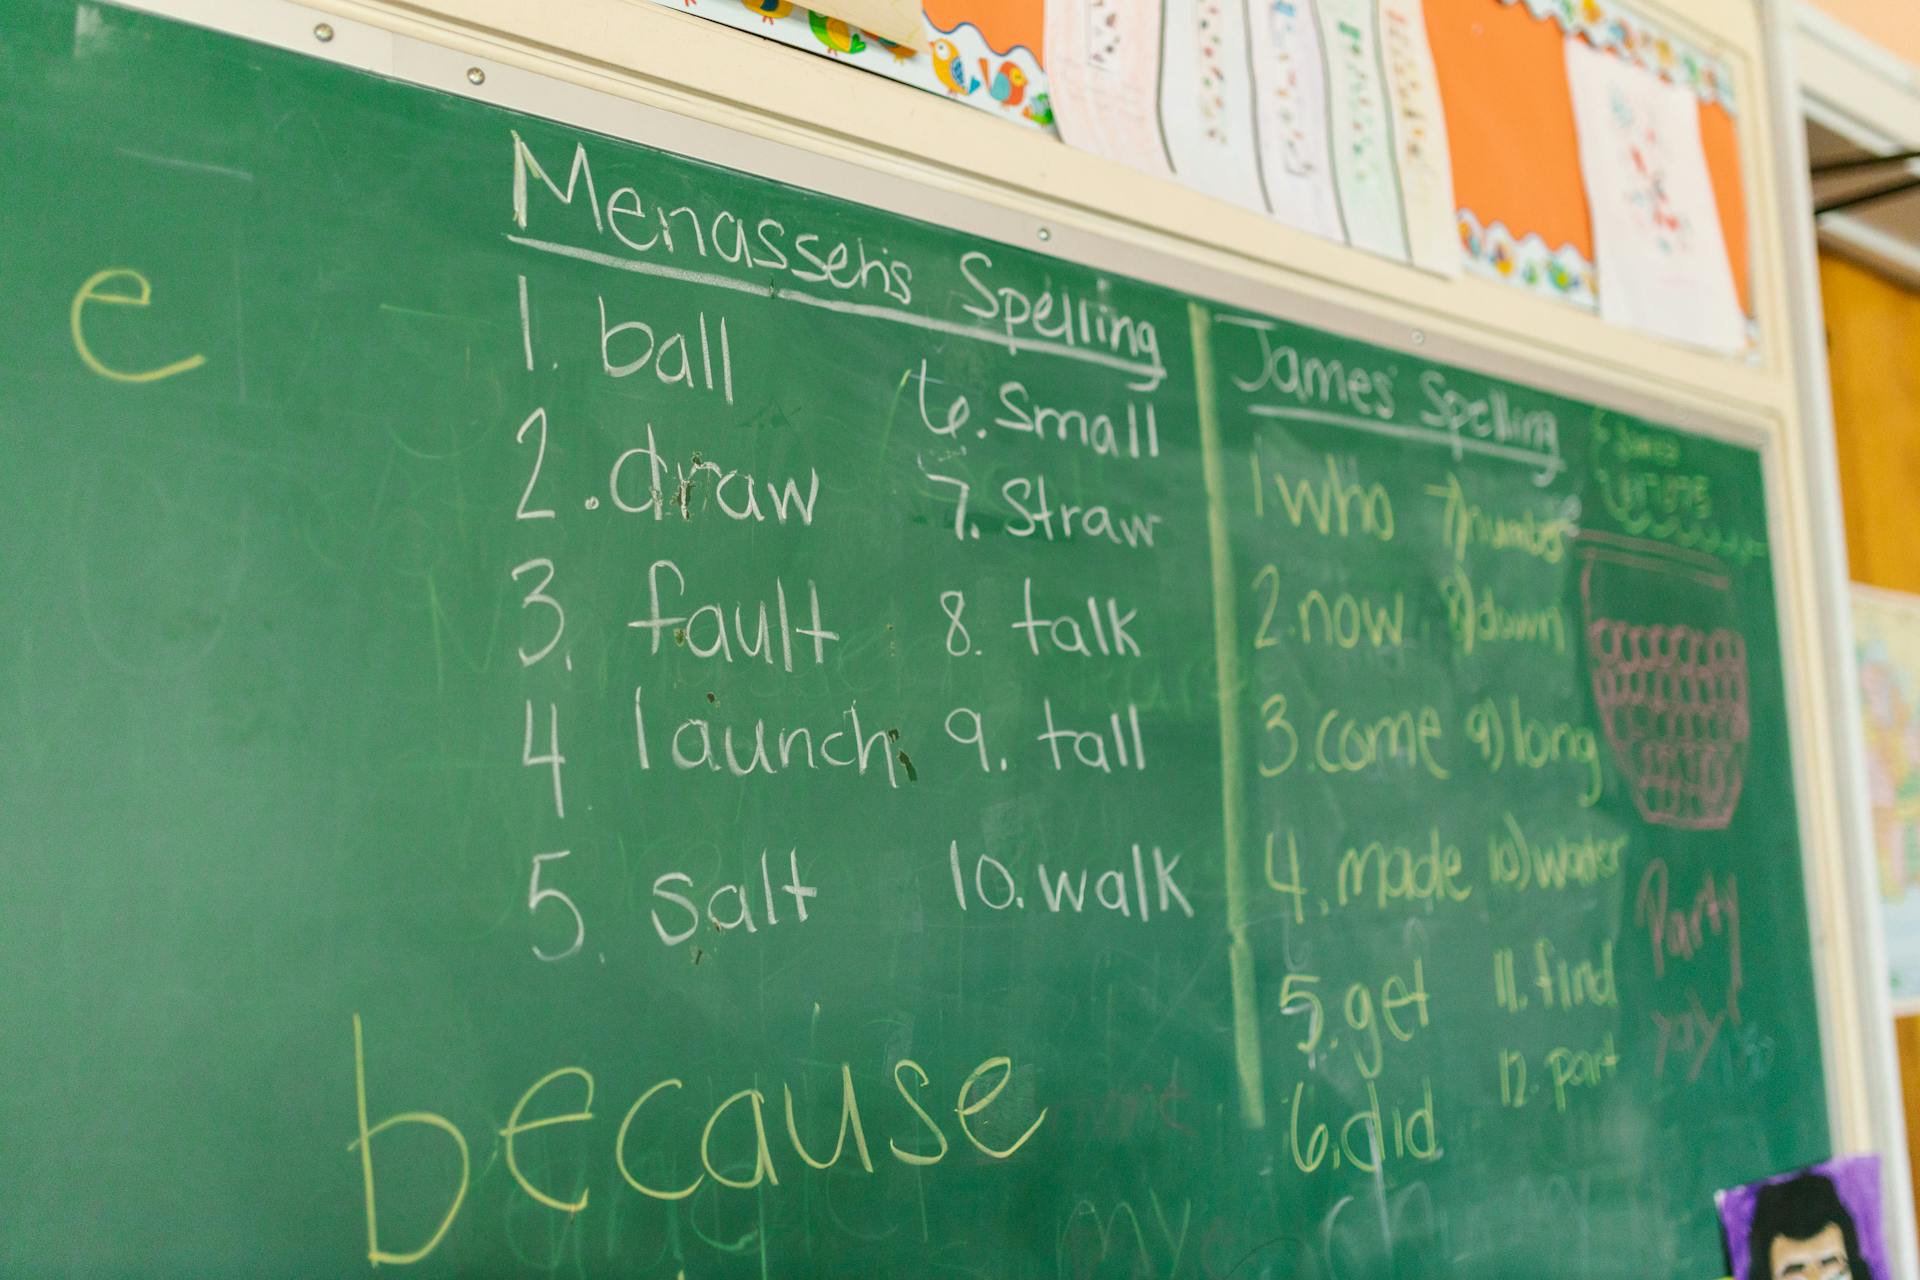 e
Menasseh's Spelling
1. ball
2. draw
3. fault
4 launch
5. salt
6. small
7. straw
8. talk
9. tall
10. walk
because
James' Spelling
1 who
2. now
3. come
4. made
5. get
6. did
7) number
8) down
9) long
10) water
11. find
12. part
Party
yay!